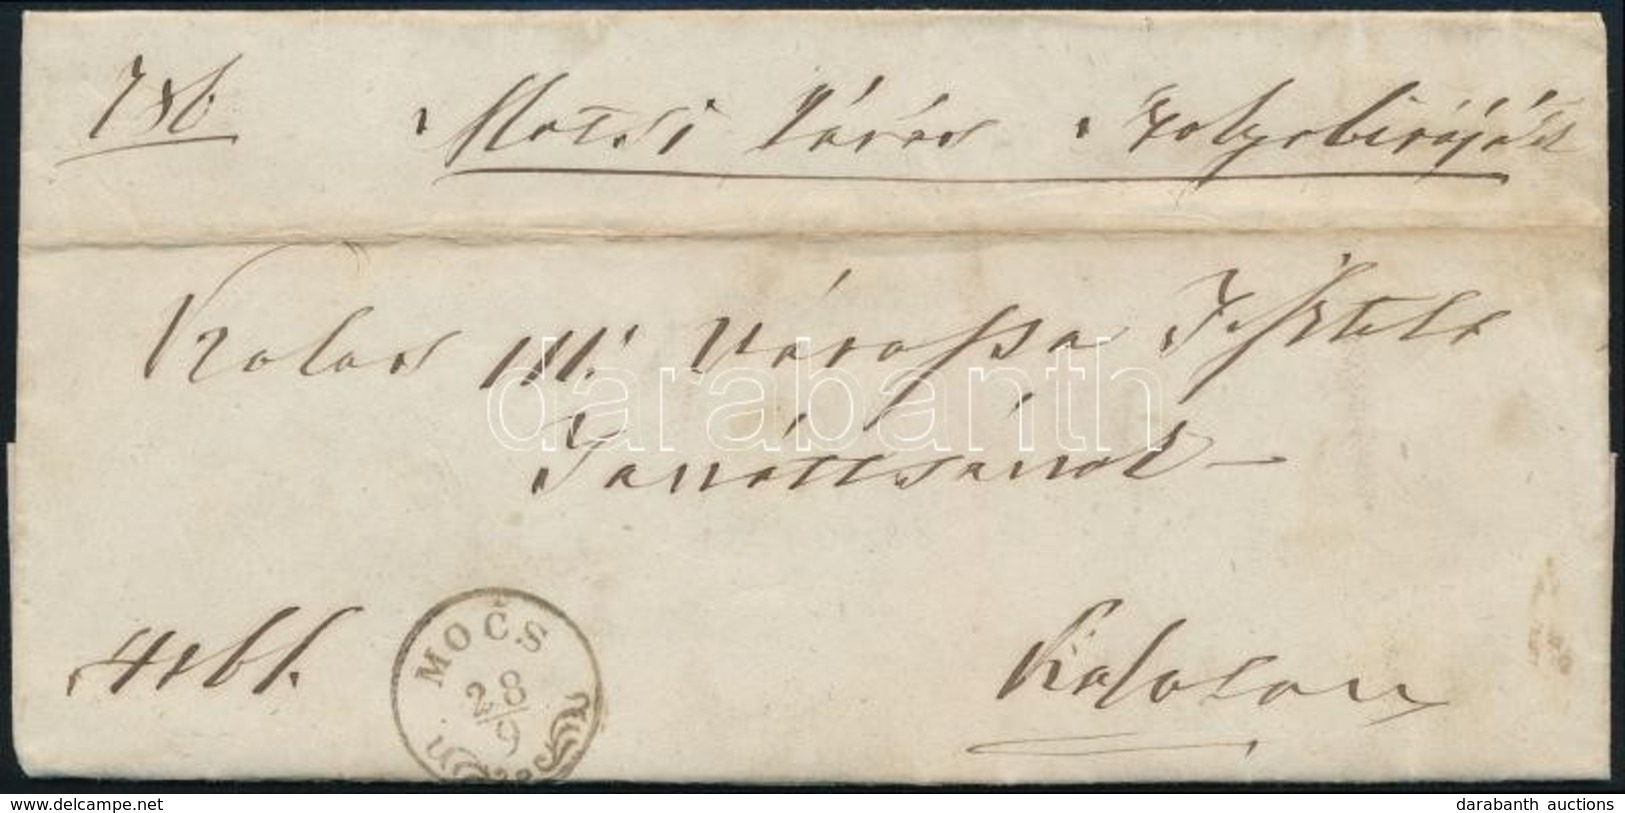 786
Motsi Város Szolgabirájától
Kolos
Várossa Tisztelt
Tanáttsának
Koloson
MOČS
28/9
darabanth
www.delcampe.net
darabanth auctions